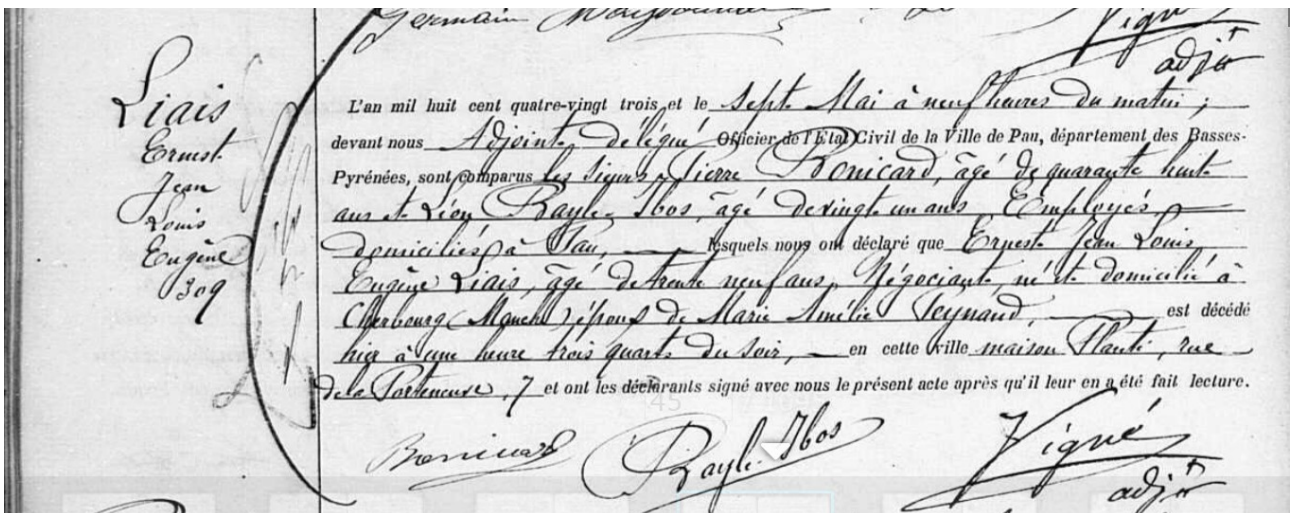 Germain
Vigné
adjt
Liais
Ernest
Jean
Louis
Eugène
309
L'an mil huit cent quatre-vingt trois et le sept Mai à neuf heures du matin ;
devant nous Adjoint délégué Officier de l'Etat Civil de la Ville de Pau, département des Basses-
Pyrénées, sont comparus les sieurs Pierre Bonicard, âgé de quarante huit
ans et Léon Bayle-Ibos, âgé de vingt un ans Employés
domiciliés à Pau, lesquels nous ont déclaré que Ernest Jean Louis
Eugène Liais, âgé de trente neuf ans, Négociant, né et domicilié à
Cherbourg (Manche), époux de Marie Amélie Teynaud, est décédé
hier à une heure trois quarts du soir, en cette ville maison Planté, rue
de la Porteneuve, 7 et ont les déclarants signé avec nous le présent acte après qu'il leur en a été fait lecture.
45
Bonicard
Bayle-Ibos
Vigné
adjt